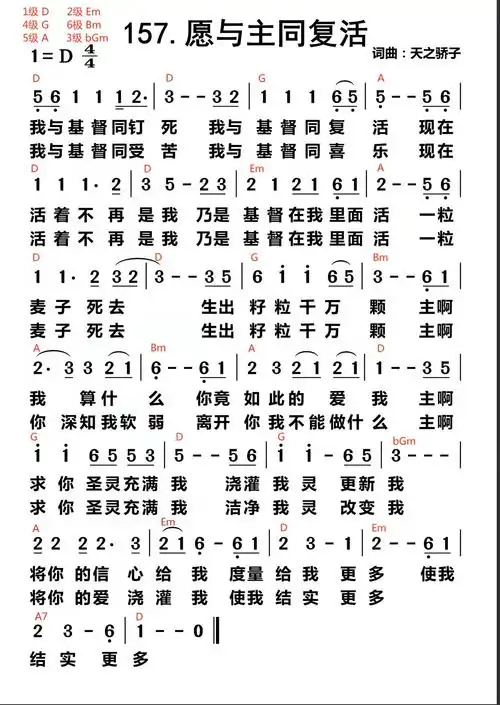 1级 D 2级 Em
4级 G 6级 Bm
5级 A 3级 bGm
157.愿与主同复活
1=D 4/4
词曲：天之骄子
D G A
5 6 1 1 1 2· | 3 - - 3 2 | 1 1 1 6 5 | 5 - - 5 6 |
我与基督同钉 死 我与 基督同复 活 现在
我与基督同受 苦 我与 基督同喜 乐 现在
D D Em A
1 1 1· 2 | 3 5 - 2 3 | 2 1 2 1 6 | 2 - - 5 6 |
活着不再是我 乃是基督在我里面活 一粒
活着不再是我 乃是基督在我里面活 一粒
D D G Bm
1 1· 2 3 2 | 3 - - 3 5 | 6 i i 6 5 | 3 - - 6 1 |
麦子 死去 生出 籽粒千万 颗 主啊
麦子 死去 生出 籽粒千万 颗 主啊
A Bm A D
2· 3 3 2 1 | 6 - - 6 1 | 2 3 3 2 1 | 1 - - 5 |
我 算什 么 你竟 如此的 爱 我 主啊
你 深知我软 弱 离开 你我不能做什么 主啊
G D G bGm
i i 6 5 5 3 | 5 - 5 6 | 5 6 5 2 | 3 - - - |
求你 圣灵充满 我 浇灌我灵 更新我
求你 圣灵充满 我 洁净我灵 改变我
A Em D Em
2 2 2 2· 3 | 2 1 6 - 6 | 1 1 - 3 | 2 - - 6 1 |
将你的信 心给 我 度量给我 更 多 使我
将你的爱 浇灌 我 使我结实 更 多
A7 D
2 3 - 6 | 1 - - 0 ‖
结 实 更 多